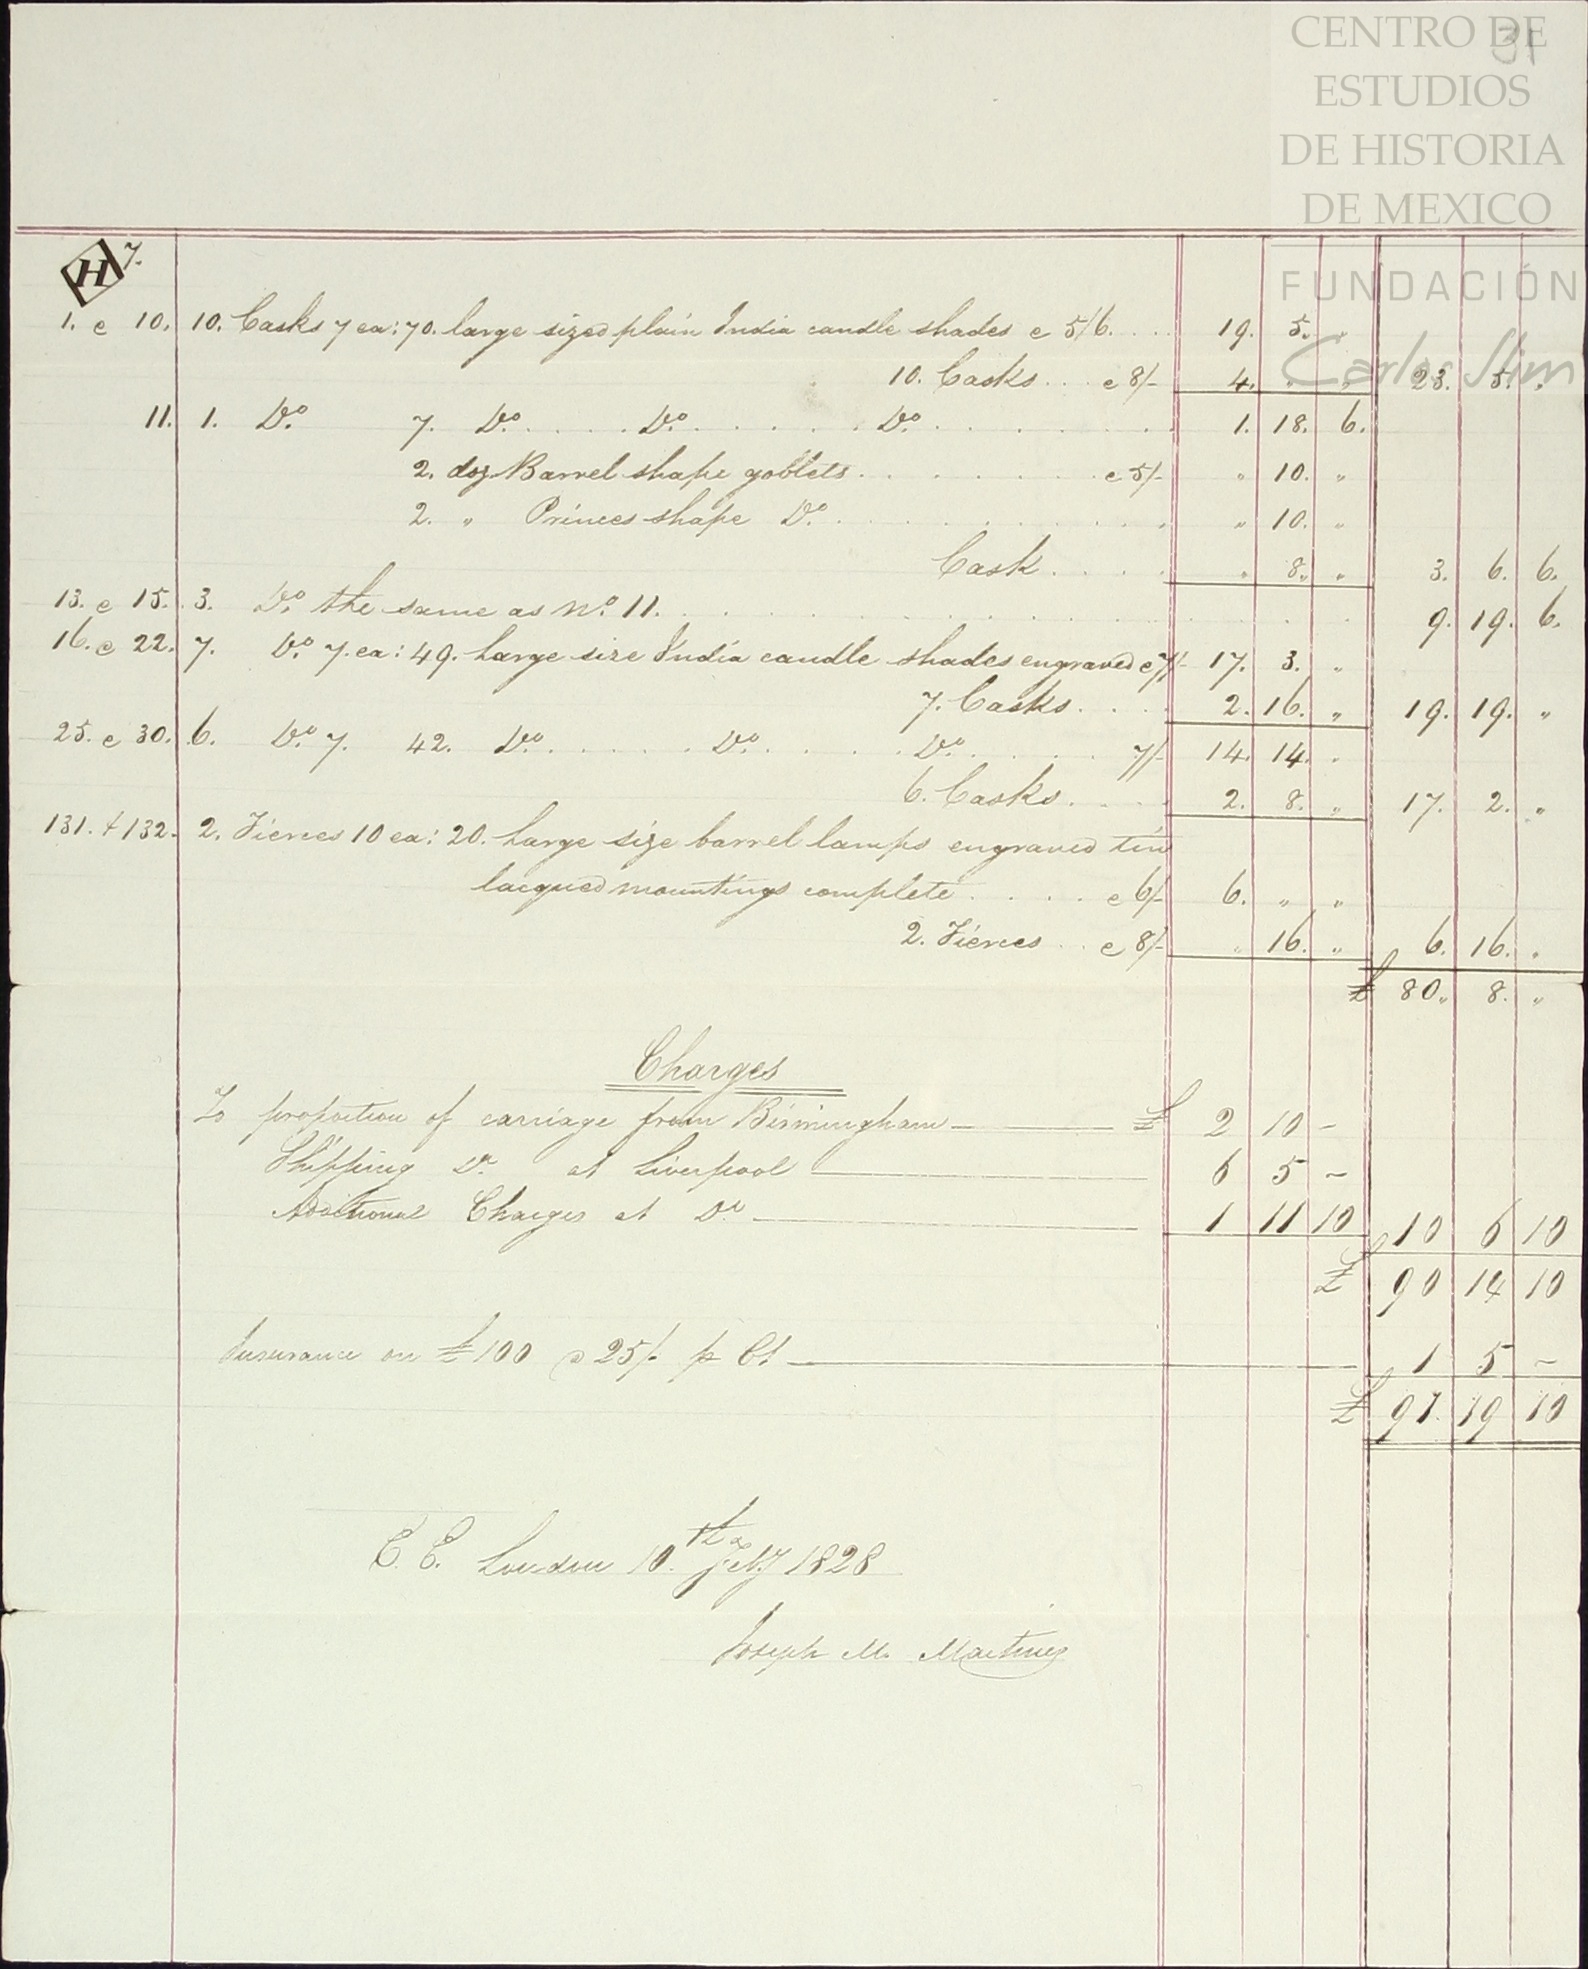 CENTRO DE
ESTUDIOS
DE HISTORIA
DE MEXICO
FUNDACIÓN
Carlos Slim
31
H 7.
1. e 10. 10. Casks 7 ea: 70. large sized plain India candle shades e 5/6. . . 19. 5. "
10. Casks . . . e 8/- 4. " " 23. 5. "
11. 1. Do. 7. Do. . . . . Do. . . . . . Do. . . . . . 1. 18. 6.
2. doz Barrel shape goblets . . . . . . e 5/- " 10. "
2. " Princes shape Do. . . . . . . . . " 10. "
Cask . . . . " 8. " 3. 6. 6.
13. e 15. 3. Do. the same as No. 11. . . . . . . . . . 9. 19. 6.
16. e 22. 7. Do. 7. ea: 49. Large size India candle shades engraved e 7/- 17. 3. "
7. Casks . . . . 2. 16. " 19. 19. "
25. e 30. 6. Do. 7. 42. Do. . . . . . Do. . . . . Do. . . . . 7/- 14. 14. "
6. Casks . . . . 2. 8. " 17. 2. "
131. & 132. 2. Tierces 10 ea: 20. Large size barrel lamps engraved tin
lacqued mountings complete . . . . e 6/- 6. " "
2. Tierces . . e 8/- " 16. " 6. 16. "
£ 80. 8. "
Charges
To proportion of carriage from Birmingham — £ 2 10 -
Shipping Do. at Liverpool — 6 5 -
Additional Charges at Do — 1 11 10 10 6 10
£ 90 14 10
Insurance on £100 @ 25/- p Ct — 1 5 -
£ 91. 19 10
E. E. London 10th Feby 1828
Joseph M. Martinez